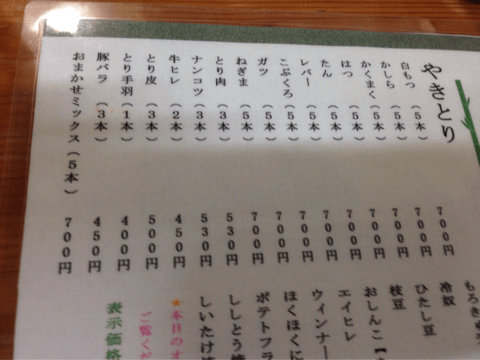 やきとり
白もつ（5本）700円
かしら（5本）700円
かくまく（5本）700円
はつ（5本）700円
たん（5本）700円
レバー（5本）700円
こぶくろ（5本）700円
ガツ（5本）700円
ねぎま（5本）700円
とり肉（3本）530円
ナンコツ（3本）530円
牛ヒレ（2本）450円
とり皮（3本）500円
とり手羽（1本）400円
豚バラ（3本）450円
おまかせミックス（5本）700円
もろき
冷奴
ひたし豆
枝豆
おしんこ
エイヒレ
ウィンナー
ほくほくに
ポテトフラ
ししとう焼
しいたけ焼
★本日のオ
ご覧くだ
表示価格